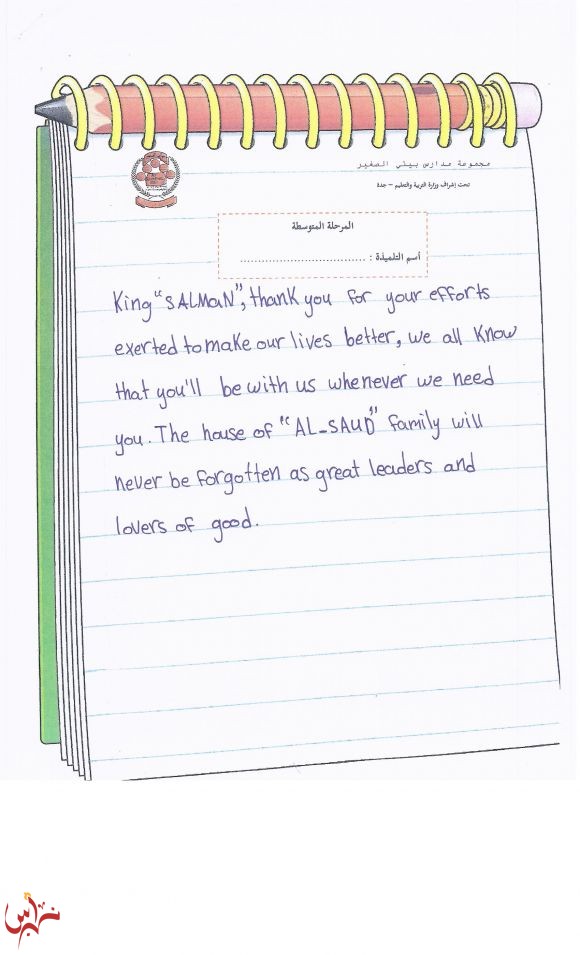 مجموعة مدارس بيتي الصغير
تحت إشراف وزارة التربية والتعليم - جدة
المرحلة المتوسطة
أسم التلميذة : ....................................
King "SALMaN", thank you for your efforts
exerted to make our lives better, we all know
that you'll be with us whenever we need
you. The house of "AL-SAUD" family will
never be forgotten as great leaders and
lovers of good.